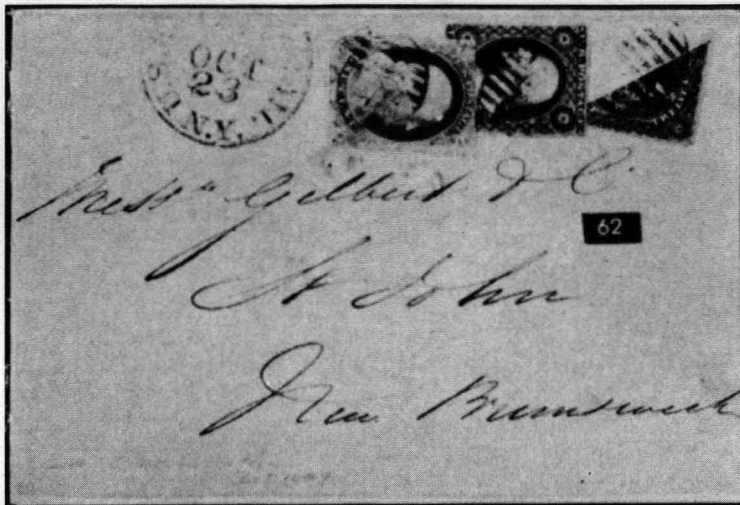 OCT
23
N.Y.
Messrs Gilbert & C.
62
St John
New Brunswick